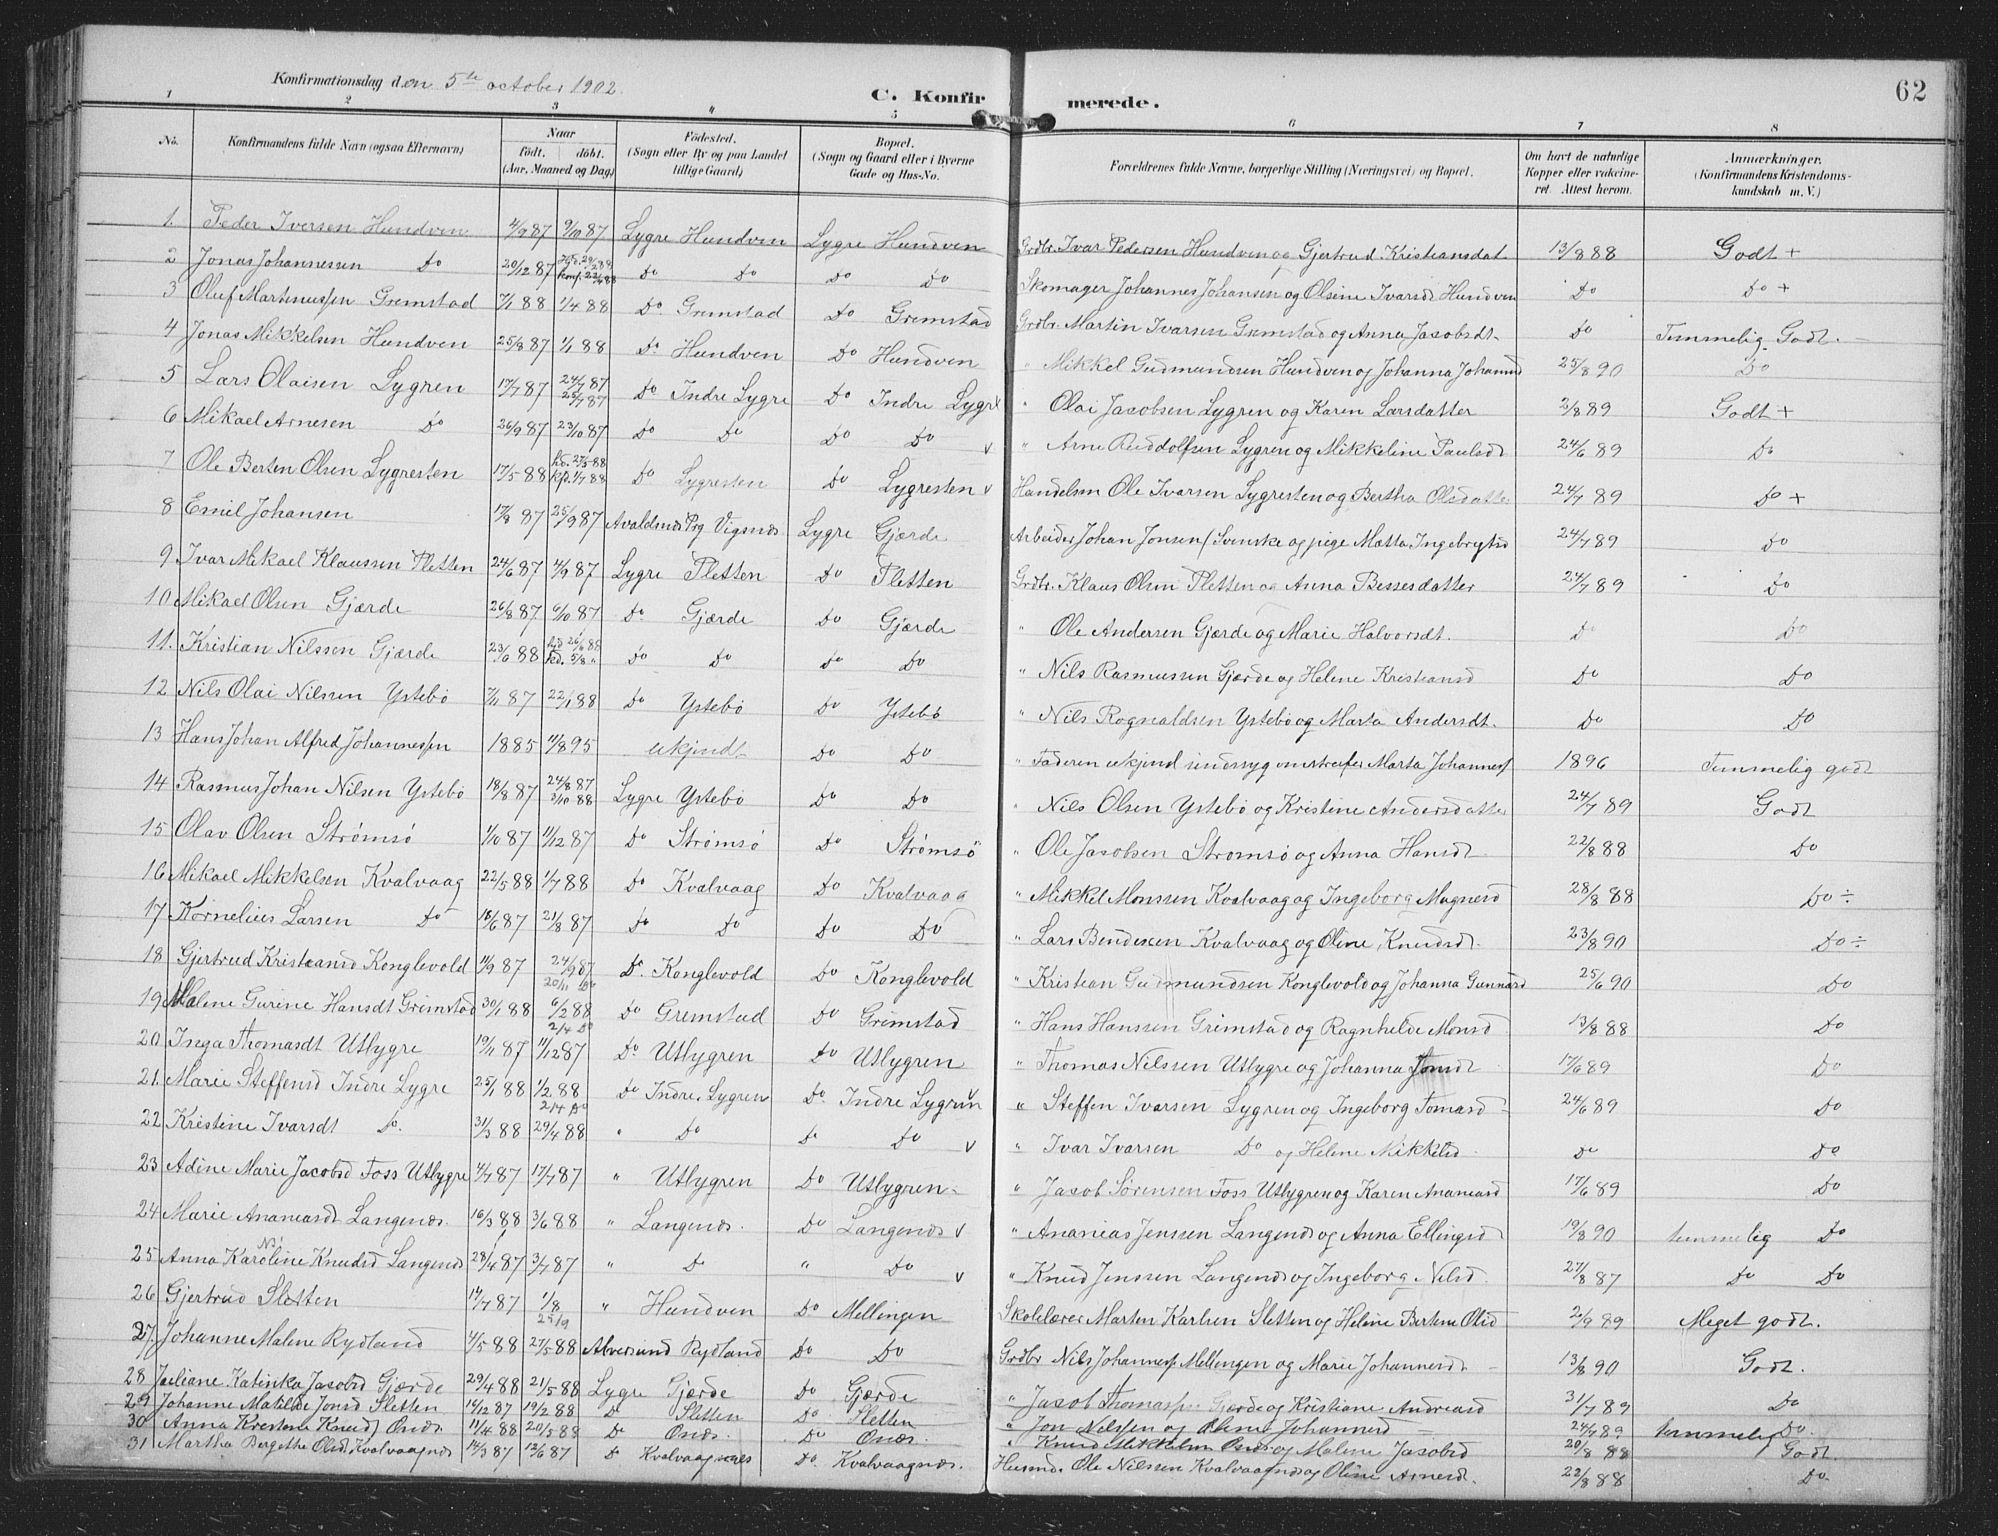 Konfirmationsdag den 5te october 1902.
C. Konfirmerede.
62
1 2 3 " 5 6 7 8
No. Konfirmandens fulde Navn (ogsaa Efternavn) Naar födt. döbt. (Aar, Maaned og Dag) Födested. (Sogn eller By og paa Landet tillige Gaard) Bopæl. (Sogn og Gaard eller i Byerne Gade og Hus-No. Forældrenes fulde Navne, borgerlige Stilling (Næringsvei) og Bopæl. Om havt de naturlige Kopper eller vakcineret. Attest herom. Anmærkninger. (Konfirmandens Kristendomskundskab m. V.)
1. Peder Iversen Hundven 4/9 87 9/10 87 Lygre Hundven Lygre Hundven Grdbr. Ivar Pedersen Hundven og Gjertrud Kristiansdat 13/8 88 Godt +
2 Jonas Johannessen Do 20/12 87 Do Do Do Do Skomager Johannes Johansen og Olsine Ivarsd Hundven Do Do +
3 Oluf Martinussen Gremstad 7/1 88 1/4 88 Do Gremstad Do Gremstad Grdbr. Martin Ivarsen Gremstad og Anna Jacobsdt Do Temmelig Godt.
4 Jonas Mikkelsen Hundven 25/8 87 1/1 88 Do Hundven Do Hundven " Mikkel Gudmundsen Hundven og Johanna Johannsd 25/8 90 Do
5 Lars Olaisen Lygren 17/7 87 24/7 87 25/7 87 Do Indre Lygre Do Indre Lygre " Olai Jacobsen Lygren og Karen Larsdatter 2/8 89 Godt +
6 Mikael Arnesen Do 26/9 87 23/10 87 Do Do Do Do v " Arne Ruddolfsen Lygren og Mikkeline Paulsd 24/6 89 Do
7 Ole Berten Olsen Lygresten 17/5 88 hd. 27/5 88 kp. 1/7 88 Do Lygresten Do Lygresten v Handelsm Ole Ivarsen Lygresten og Bertha Olsdatter 24/7 89 Do +
8 Emil Johansen 17/8 87 25/9 87 Avaldsnes Prg Vigsnes Lygre Gjærde Arbeider Johan Jonsen (Svenske og pige Matta Ingebrigtsd 24/7 89 Do
9 Ivar Mikael Klaussen Sletten 24/6 87 4/9 87 Lygre Sletten Do Sletten Grdbr. Klaus Olsen Sletten og Anna Bessesdatter 24/7 89 Do
10 Mikael Olsen Gjærde 26/8 87 9/10 87 Do Gjærde Do Gjærde " Ole Andersen Gjærde og Marie Halvorsdt. Do Do
11. Kristian Nilssen Gjærde 23/6 88 hjd 26/6 88 kd. 5/8 " Do Do Do Do " Nils Rasmussen Gjærde og Helene Kristiansd Do Do
12 Nils Olai Nilssen Ystebø 7/11 87 22/1 88 Do Ystebø Do Ystebø " Nils Rognaldsen Ystebø og Marta Andersdt. Do Do
13 Hans Johan Alfred Johannessen 1885 11/8 95 ukjendt Do Do " Faderen ukjend sindssyg omstreifer Marta Johannesd 1896 Temmelig godt
14 Rasmus Johan Nilsen Ystebø 18/8 87 24/8 87 2/10 88 Lygre Ystebø Do Do " Nils Olsen Ystebø og Kristine Andersdatter 24/7 89 Godt
15 Olav Olsen Strømsø 1/10 87 11/12 87 Do Strømsø Do Strømsø " Ole Jacobsen Strømsø og Anna Hansd 22/8 88 Do
16 Mikael Mikkelsen Kvalvaag 22/5 88 1/7 88 Do Kvalvaag Do Kvalvaag " Mikkel Monssen Kvalvaag og Ingeborg Magnesd 28/8 88 Do ÷
17 Kornelius Larsen Do 18/6 87 21/8 87 Do Do Do Do " Lars Bendixen Kvalvaag og Oline Knudsd. 23/8 90 Do ÷
18 Gjertrud Kristiansd Konglevold 11/9 87 24/9 87 20/11 Do Do Konglevold Do Konglevold " Kristian Gudmundsen Konglevold og Johanna Gunnarsd 25/6 90 Do
19 Malene Gurine Hansdt Grimstad 30/1 88 6/2 88 2/4 Do Do Gremstad Do Grimstad " Hans Hanssen Grimstad og Ragnhilde Monsd 13/8 88 Do
20 Inga Thomasdt Utlygre 19/11 87 11/12 87 Do Utlygren Do Utlygren " Thomas Nilssen Utlygre og Johanna Jonsd 17/6 89 Do
21. Marie Steffensd Indre Lygre 25/1 88 1/2 88 2/4 Do Do Indre Lygren Do Indre Lygren " Steffen Ivarsen Lygren og Ingeborg Tomasd 24/6 89 Do
22 Kristine Ivarsdt Do. 31/3 88 29/4 88 " Do Do Do v " Ivar Ivarsen Do og Helene Mikkelsd. Do Do
23 Adine Marie Jacobsd Foss Utlygre 4/7 87 17/7 87 " Utlygren Do Utlygren " Jacob Sørensen Foss Utlygren og Karen Ananiasd 17/6 89 Do
24 Marie Ananiasd Langenes. 16/3 88 3/6 88 " Langenes. Do Langenes v " Ananias Jenssen Langenes og Anna Ellingsd 19/8 90 temmelig Do
25 Anna Karoline Knudsd Langenes 28/4 87 3/7 87 " Do " Do v " Knud Jenssen Langenes og Ingeborg Nilsd. 27/8 87 Do Do
26 Gjertrud Sletten 14/7 87 1/8 25/9 " Hundven Do Mellingen Skolelærer Marten Karlsen Sletten og Heline Bertine Olsd 2/9 89 Meget godt.
27. Johanne Malene Rydland 4/5 88 27/5 88 Alversund Rydland Do Do Grdbr Nils Johannesp Mellingen og Marie Johannesd 13/8 90 Godt.
28 Juliane Katinka Jacobsd Gjærde 29/4 88 21/5 88 Lygre Gjærde Do Gjærde " Jacob Thomasp Gjærde og Kristiane Andreasd 31/7 89 Do
29 Johanne Matilde Jonsd Sletten 16/12 87 19/2 88 Do Sletten Do Sletten " Jon Nilssen og Oline Johannesd 24/7 89 temmelig Do.
30 Anna Krestine Knudsd Osnes. 11/4 88 20/5 88 Do Osnes. Do Osnes. " Knud Mikkelsen Osnes og Malene Jacobsd 20/8 88 Godt.
31 Martha Bergethe Olsd Kvalvaagnes 14/3 87 12/6 87 Do Kvalvaagnes Do. Kvalvaagnes. Husmd. Ole Nilssen Kvalvaagnes og Oline Arnesd. 22/8 88 Do